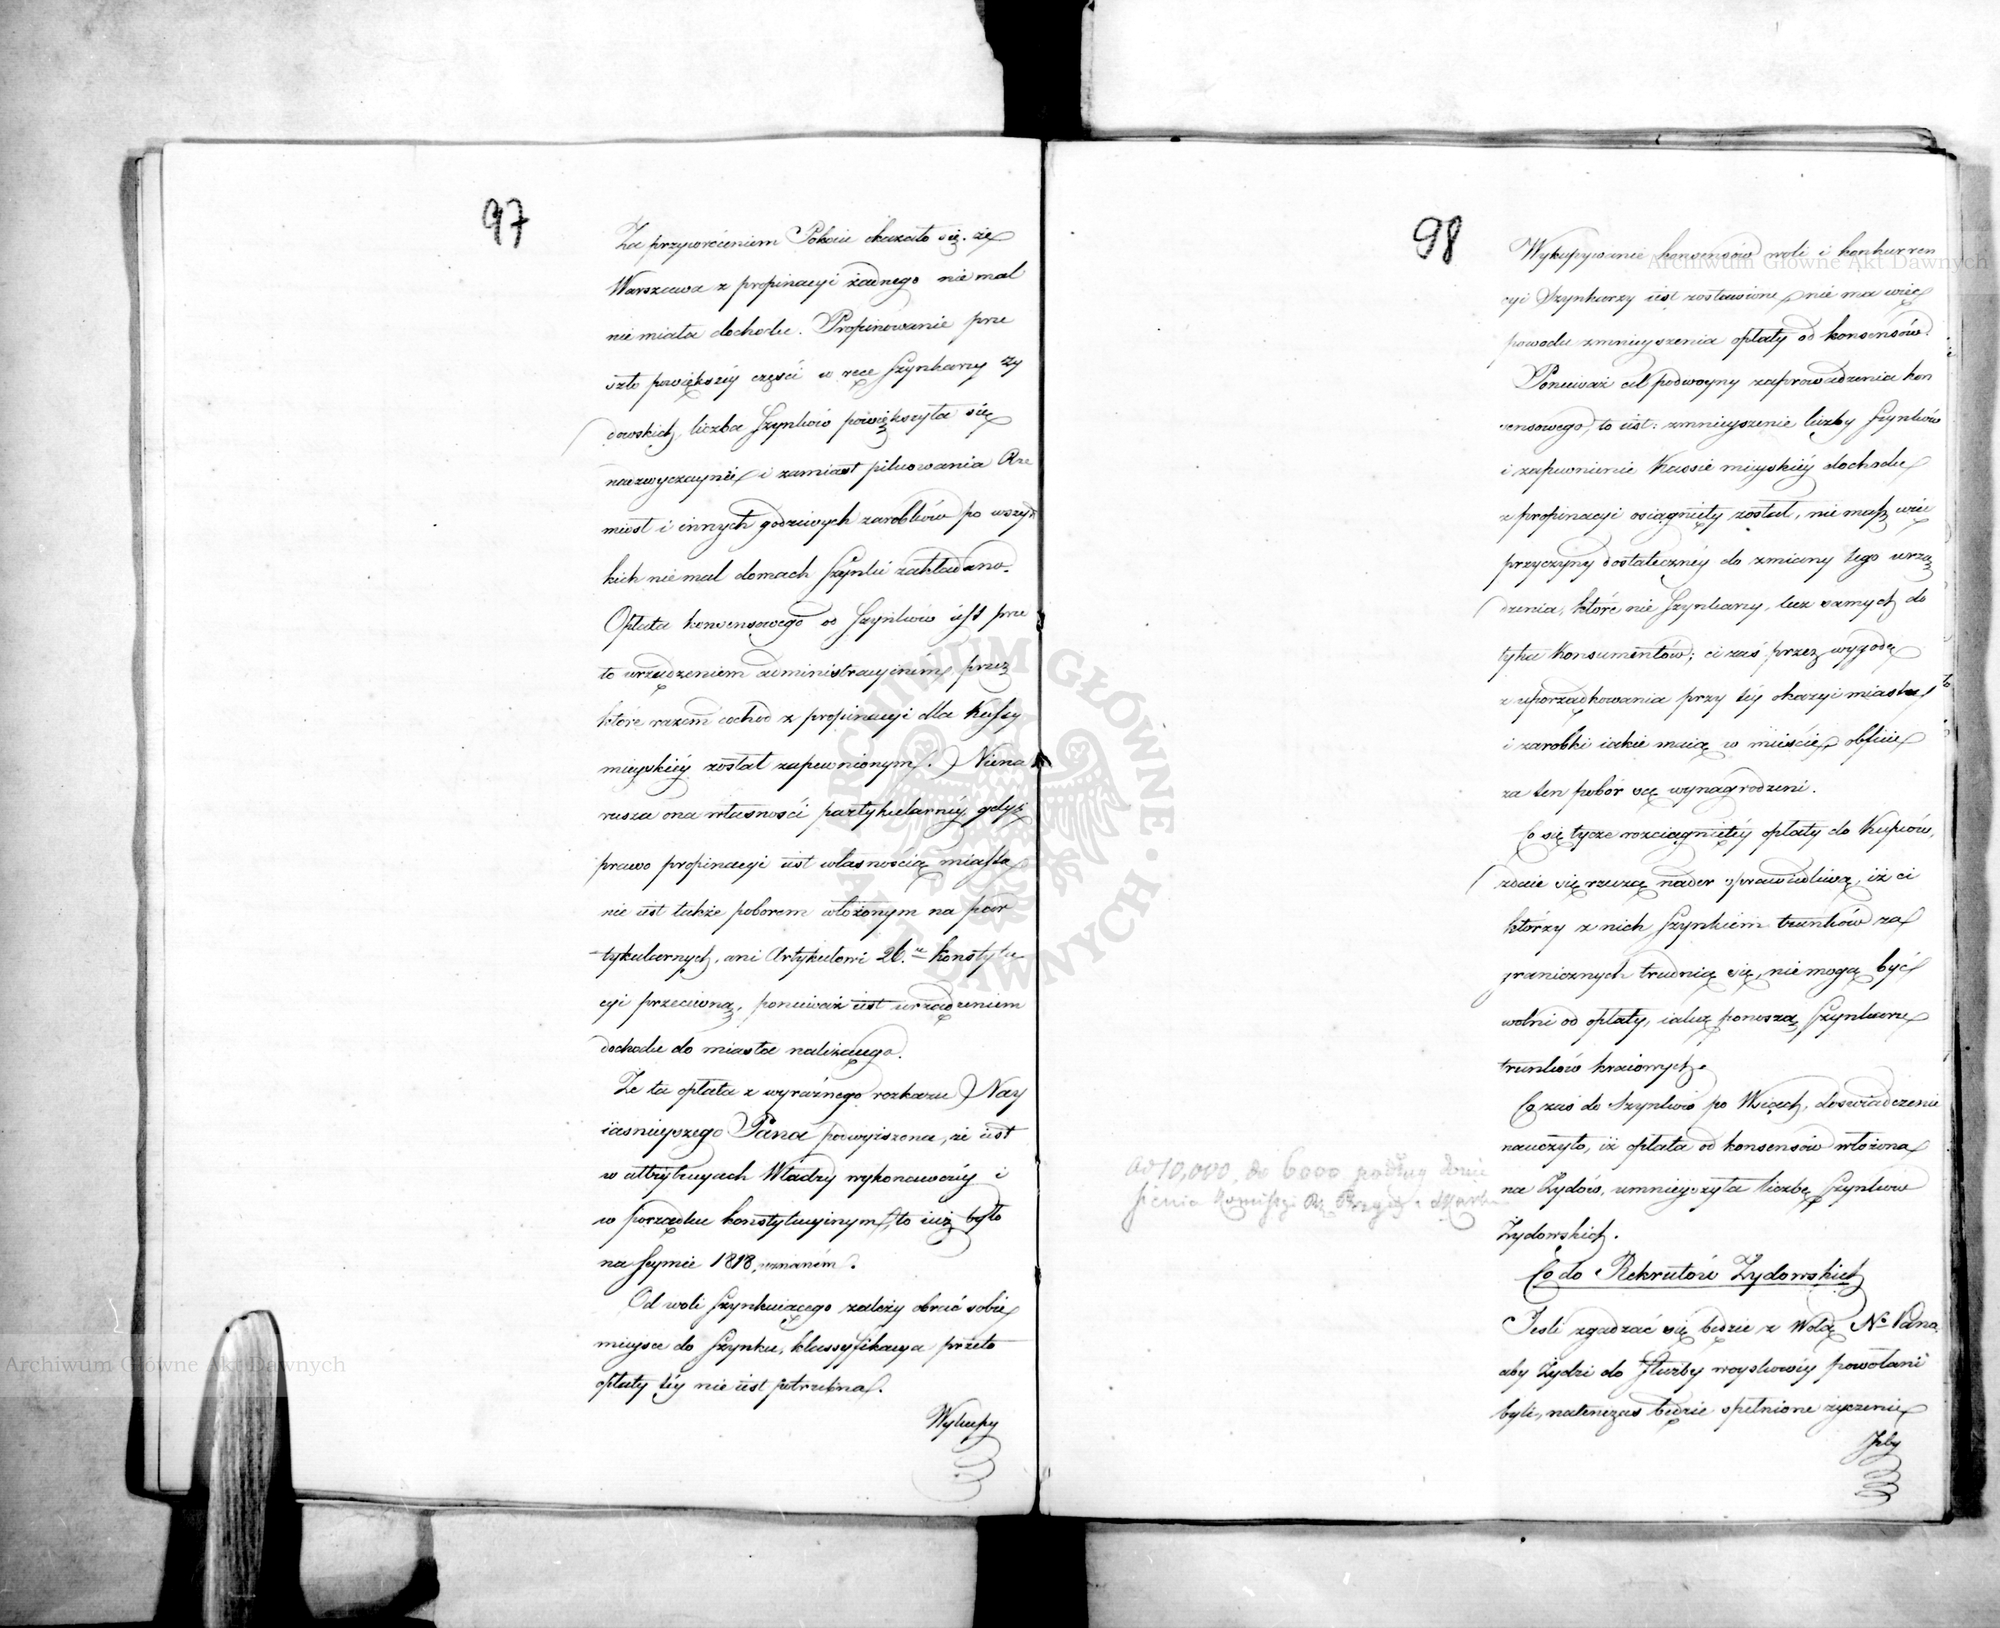 97
Za przywróceniem Pokoiu okazało się, że
Warszawa z propinacyi żadnego niemal
nie miała dochodu. Propinowanie prze
szło powiększéy części w ręce Szynkarzy ży
dowskich, liczba Szynków powiększyła się
nadzwyczaynie i zamiast pilnowania Rze
miosł i innych godziwych zarobków po wszyst
kich niemal domach Szynki zakładano.
Opłata konsensowego od Szynków iest prze
to urządzeniem administracyinem przez
które razem dochod z propinacyi dla Kassy
mieyskiéy został zapewnionym. Niena
rusza ona własności partykularnéy, gdyż
prawo propinacyi iest własnością miasta
nie iest także poborem włożonym na par
tykularnych, ani Artykułowi 26. konstytu
cyi przeciwną, ponieważ iest urządzeniem
dochodu do miasta należącego.
Że ta opłata z wyraźnego rozkazu Nay
iaśnieyszego Pana podwyższona, że iest
w attrybucyach Władzy wykonawczéy i
w porządku konstytucyinym, to iuż było
na Seymie 1818, uznaném.
Od woli Szynkuiącego zależy obrać sobie
mieysce do Szynku, klassyfikacya przeto
opłaty téy nie iest potrzebna.
Wykupy
98
Wykupywanie konsensów woli i konkurren
cyi Szynkarzy iest zostawione, nie ma więc
powodu zmnieyszenia opłaty od konsensów.
Ponieważ cel podwoyny zaprowadzenia kon
sensowego, to iest: zmnieyszenie liczby Szynków
i zapewnienie Kassie mieyskiéy dochodu
z propinacyi osiągnięty został, nie masz więc
przyczyny dostatecznéy do zmiany tego urzą
dzenia, które nie Szynkarzy, lecz samych do
tyka Konsumentów; ci zaś przez wygodę
z uporządkowania przy téy okazyi miasta,
i zarobki iakie maią w mieście, obficie
za ten pobór są wynagrodzeni.
Co się tycze rozciągniętéy opłaty do Kupców,
zdaie się rzeczą nader sprawiedliwą, iż ci
którzy z nich Szynkiem trunków za
granicznych trudnią się, nie mogą być
wolni od opłaty, iaką ponoszą Szynkarze
trunków kraiowych.
Co zaś do Szynków po Wsiach, doświadczenie
nauczyło, iż opłata od konsensów włożona
na Żydów, umnieyszyła liczbę Szynków
Żydowskich.
od 10,000, do 6000 podług donie
sienia Komissyi Rz. Przych. i Skarbu
Co do Rekrutów Żydowskich
Jeśli zgadzać się będzie z Wolą No. Pana,
aby Żydzi do służby woyskowéy powołani
byli, natenczas będzie spełnione życzenie
Izby
Archiwum Główne Akt Dawnych
Archiwum Główne Akt Dawnych
ARCHIWUM GŁÓWNE AKT DAWNYCH